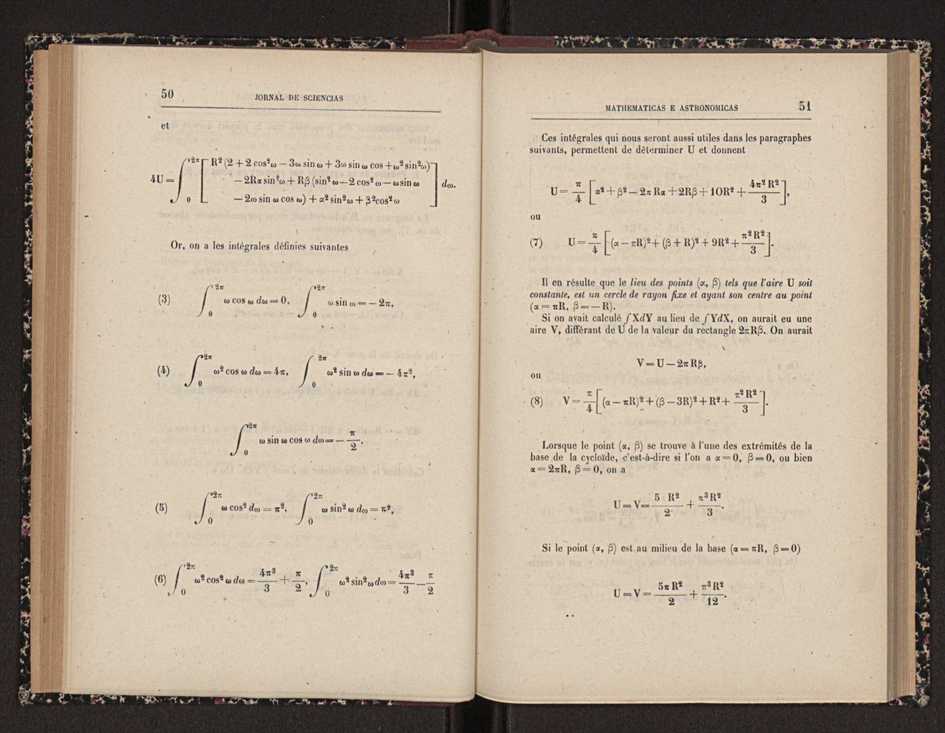 50 JORNAL DE SCIENCIAS
et
4U = ∫₀^2π [ R² (2 + 2 cos²ω − 3ω sin ω + 3ω sin ω cos + ω² sin²ω)
− 2Rα sin²ω + Rβ (sin²ω − 2 cos²ω − ω sin ω
− 2ω sin ω cos ω) + α² sin²ω + β² cos²ω ] dω.
Or, on a les intégrales définies suivantes
(3) ∫₀^2π ω cos ω dω = 0, ∫₀^2π ω sin ω = − 2π,
(4) ∫₀^2π ω² cos ω dω = 4π, ∫₀^2π ω² sin ω dω = − 4π²,
∫₀^2π ω sin ω cos ω dω = − π/2.
(5) ∫₀^2π ω cos² dω = π², ∫₀^2π ω sin² ω dω = π²,
(6) ∫₀^2π ω² cos² ω dω = 4π³/3 + π/2, ∫₀^2π ω² sin² ω dω = 4π³/3 − π/2
MATHEMATICAS E ASTRONOMICAS 51
Ces intégrales qui nous seront aussi utiles dans les paragraphes
suivants, permettent de déterminer U et donnent
U = π/4 [α² + β² − 2π Rα + 2Rβ + 10R² + 4π² R²/3],
ou
(7) U = π/4 [(α − πR)² + (β + R)² + 9R² + π² R²/3].
Il en résulte que le lieu des points (α, β) tels que l'aire U soit
constante, est un cercle de rayon fixe et ayant son centre au point
(α = πR, β = − R).
Si on avait calculé ∫XdY au lieu de ∫YdX, on aurait eu une
aire V, différant de U de la valeur du rectangle 2πRβ. On aurait
V = U − 2π Rβ,
ou
(8) V = π/4 [(α − πR)² + (β − 3R)² + R² + π² R²/3].
Lorsque le point (α, β) se trouve à l'une des extrémités de la
base de la cycloïde, c'est-à-dire si l'on a α = 0, β = 0, ou bien
α = 2πR, β = 0, on a
U = V = 5 R²/2 + π³ R²/3.
Si le point (α, β) est au milieu de la base (α = πR, β = 0)
U = V = 5π R²/2 + π³ R²/12.